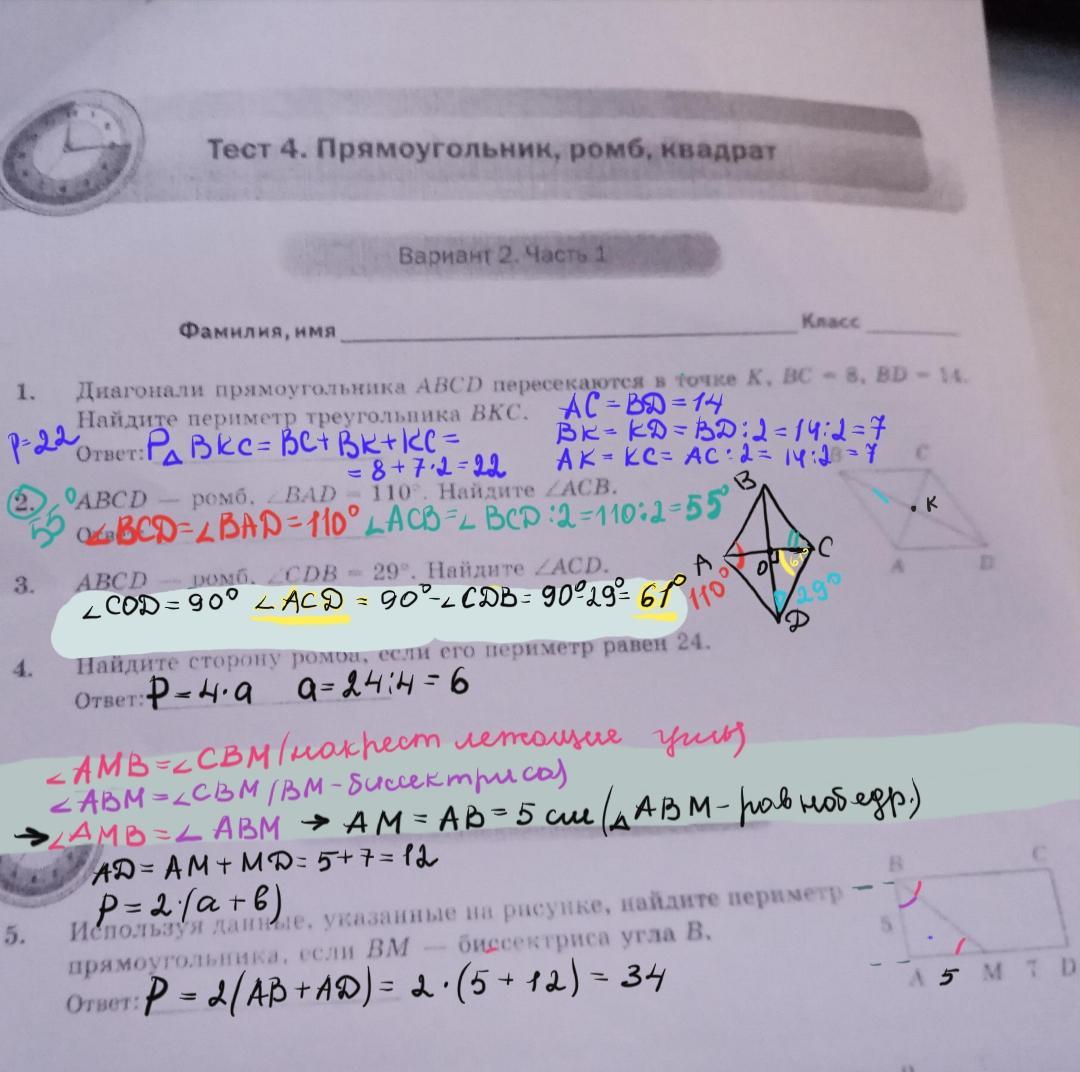 Тест 4. Прямоугольник, ромб, квадрат
Вариант 2. Часть 1
Фамилия, имя Класс
1. Диагонали прямоугольника ABCD пересекаются в точке K, BC = 8, BD = 14.
Найдите периметр треугольника BKC.
AC = BD = 14
P=22
Ответ: P△ BKC = BC + BK + KC =
= 8 + 7·2 = 22
BK = KD = BD:2 = 14:2 = 7
AK = KC = AC:2 = 14:2 = 7
B C
K
A D
2. ABCD — ромб, ∠BAD = 110°. Найдите ∠ACB.
55°
∠BCD = ∠BAD = 110° ∠ACB = ∠BCD:2 = 110:2 = 55°
3. ABCD — ромб, ∠CDB = 29°. Найдите ∠ACD.
∠COD = 90° ∠ACD = 90° - ∠CDB = 90° 29° = 61°
B
A O C
61°
110° 29°
D
4. Найдите сторону ромба, если его периметр равен 24.
Ответ: P = 4·a a = 24:4 = 6
∠AMB = ∠CBM (накрест лежащие углы)
∠ABM = ∠CBM (BM - биссектриса)
→ ∠AMB = ∠ABM → AM = AB = 5 см (△ABM - равнобедр.)
AD = AM + MD = 5 + 7 = 12
P = 2·(a + b)
5. Используя данные, указанные на рисунке, найдите периметр
прямоугольника, если BM — биссектриса угла B.
Ответ: P = 2(AB + AD) = 2·(5 + 12) = 34
B C
5
A 5 M 7 D